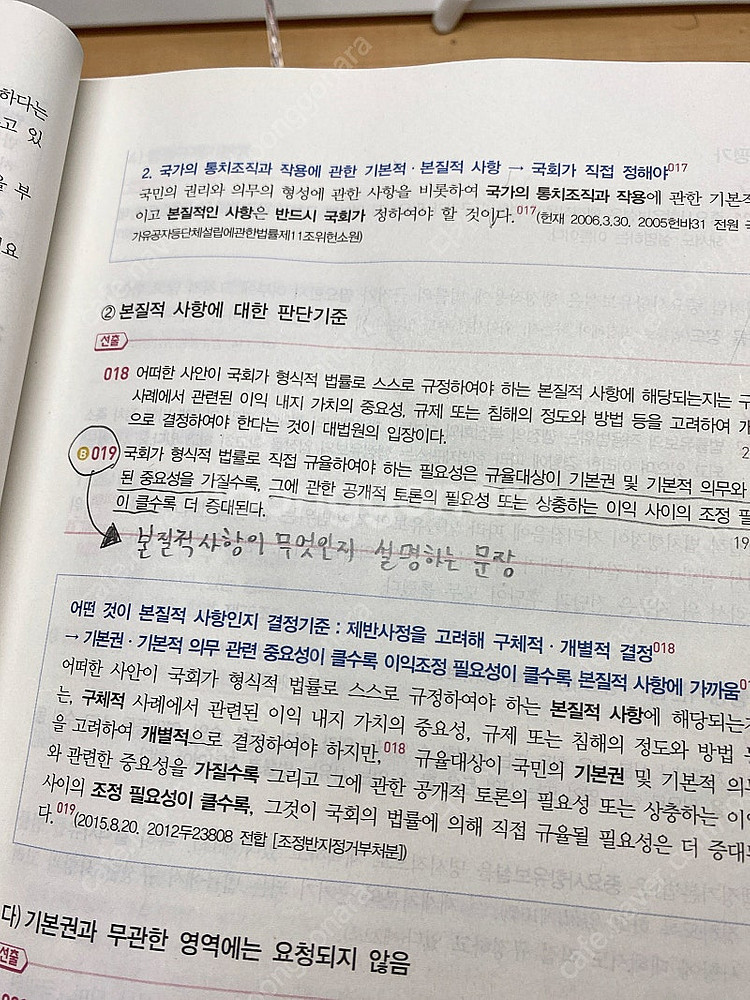 하다는
고 있
을 부
요
2. 국가의 통치조직과 작용에 관한 기본적·본질적 사항 → 국회가 직접 정해야017
국민의 권리와 의무의 형성에 관한 사항을 비롯하여 국가의 통치조직과 작용에 관한 기본적
이고 본질적인 사항은 반드시 국회가 정하여야 할 것이다.017(헌재 2006.3.30. 2005헌바31 전원
가유공자등단체설립에관한법률제11조위헌소원)
② 본질적 사항에 대한 판단기준
선출
018 어떠한 사안이 국회가 형식적 법률로 스스로 규정하여야 하는 본질적 사항에 해당되는지는 구
사례에서 관련된 이익 내지 가치의 중요성, 규제 또는 침해의 정도와 방법 등을 고려하여 개
으로 결정하여야 한다는 것이 대법원의 입장이다.
B 019 국회가 형식적 법률로 직접 규율하여야 하는 필요성은 규율대상이 기본권 및 기본적 의무와
된 중요성을 가질수록, 그에 관한 공개적 토론의 필요성 또는 상충하는 이익 사이의 조정 필
이 클수록 더 증대된다.
19
본질적사항이 무엇인지 설명하는 문장
어떤 것이 본질적 사항인지 결정기준 : 제반사정을 고려해 구체적·개별적 결정018
→ 기본권·기본적 의무 관련 중요성이 클수록 이익조정 필요성이 클수록 본질적 사항에 가까움
어떠한 사안이 국회가 형식적 법률로 스스로 규정하여야 하는 본질적 사항에 해당되는지
는, 구체적 사례에서 관련된 이익 내지 가치의 중요성, 규제 또는 침해의 정도와 방법
을 고려하여 개별적으로 결정하여야 하지만,018 규율대상이 국민의 기본권 및 기본적 의무
와 관련한 중요성을 가질수록 그리고 그에 관한 공개적 토론의 필요성 또는 상충하는 이익
사이의 조정 필요성이 클수록, 그것이 국회의 법률에 의해 직접 규율될 필요성은 더 증대된
다.019(2015.8.20. 2012두23808 전합 [조정반지정거부처분])
다) 기본권과 무관한 영역에는 요청되지 않음
선출